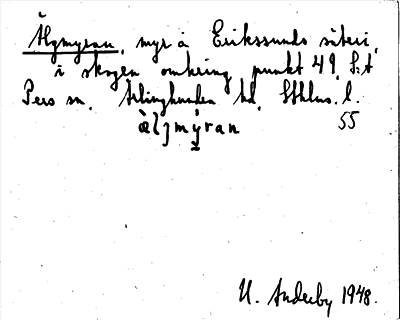 Älgmyran, myr å Erikssunds säteri,
i skogen omkring punkt 49, S:t
Pers sn, Ärlinghundra hd, Sthlms l.
55
U. Anderby 1948.